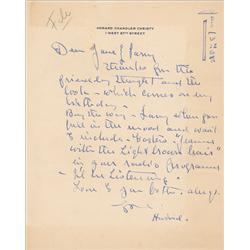 File
HOWARD CHANDLER CHRISTY
1 WEST 67TH STREET
Dear Jane & Larry
Thanks for the
friendly thought and the
book – which comes on my
birthday –
By the way – Larry when you
fall in the mood and want
to include – Foster's "Jeannie
with the Light brown hair"
in your radio programme
I'll be listening –
Love to you both always